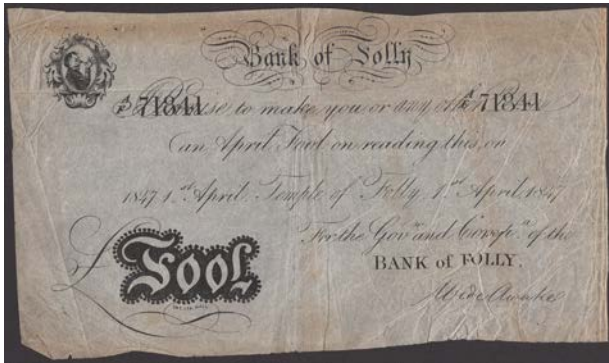 Bank of Folly
71841 71841
to make you or any other
an April Fool on reading this, on
1847 1st April. Temple of Folly, 1st April, 1847
For the Govr. and Compa. of the
BANK of FOLLY.
£ FOOL